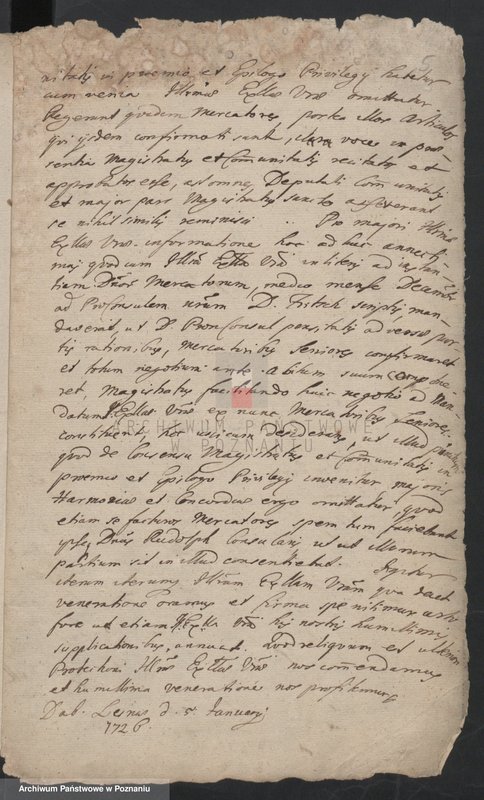 nitatis in proemio et Epilogo Privilegij habetur
cum venia Illmae Exllae Vrae omittatur
legerunt quidem Mercatores, porro illos Articulos
qui ijsdem confirmati sunt, voce in prae
sentia Magistratus et Communitatis recitatos et
approbatos esse, ast omnes Deputati Communitatis
et major pars Magistratus sancte
se nihil similis reminisci. Pro majori Illmae
Exllae Vrae informatione hoc adhuc annecti
mus quod cum Illma Exlla Vra in literis ad instan
tiam Dnor Mercatorum, medio mense Decembr
ad ProConsulem urbis D. Fritsch scriptis man
daverit, ut D. ProConsul pensitatis adversae par
tis rationibus, Mercatoribus Seniores confirmaret
et totum negotium ante abitum suum compone
ret, Magistratus
datum Exllae Vrae ex nunc Mercatoribus Seniores
constituent hoc unicum desiderans, ut illud
quod de Consensu Magistratus et Communitatis in
proemio et Epilogo Privilegij invenitur majoris
Harmoniae et Concordiae ergo omittatur, quod
etiam se facturos Mercatores spem tum faciebant
ipse Dnus Rudolph Consularis
partium sit in illud consentiebat. Igitur
iterum iterumque Illmam Exllam Vram qua decet
veneratione oramus et firma spe nitimur
fore ut etiam Exlla Vra his nostris humillimis
supplicationibus annuat. Quod reliquum est
Protectioni Illmae Exllae Vrae nos comendamus
et humillima veneratione nos profitemur
Dab. Lesnae d. 5 January
1726.
ARCHIWUM PAŃSTWOWE
W POZNANIU
Archiwum Państwowe w Poznaniu
szukajwarchiwach.gov.pl